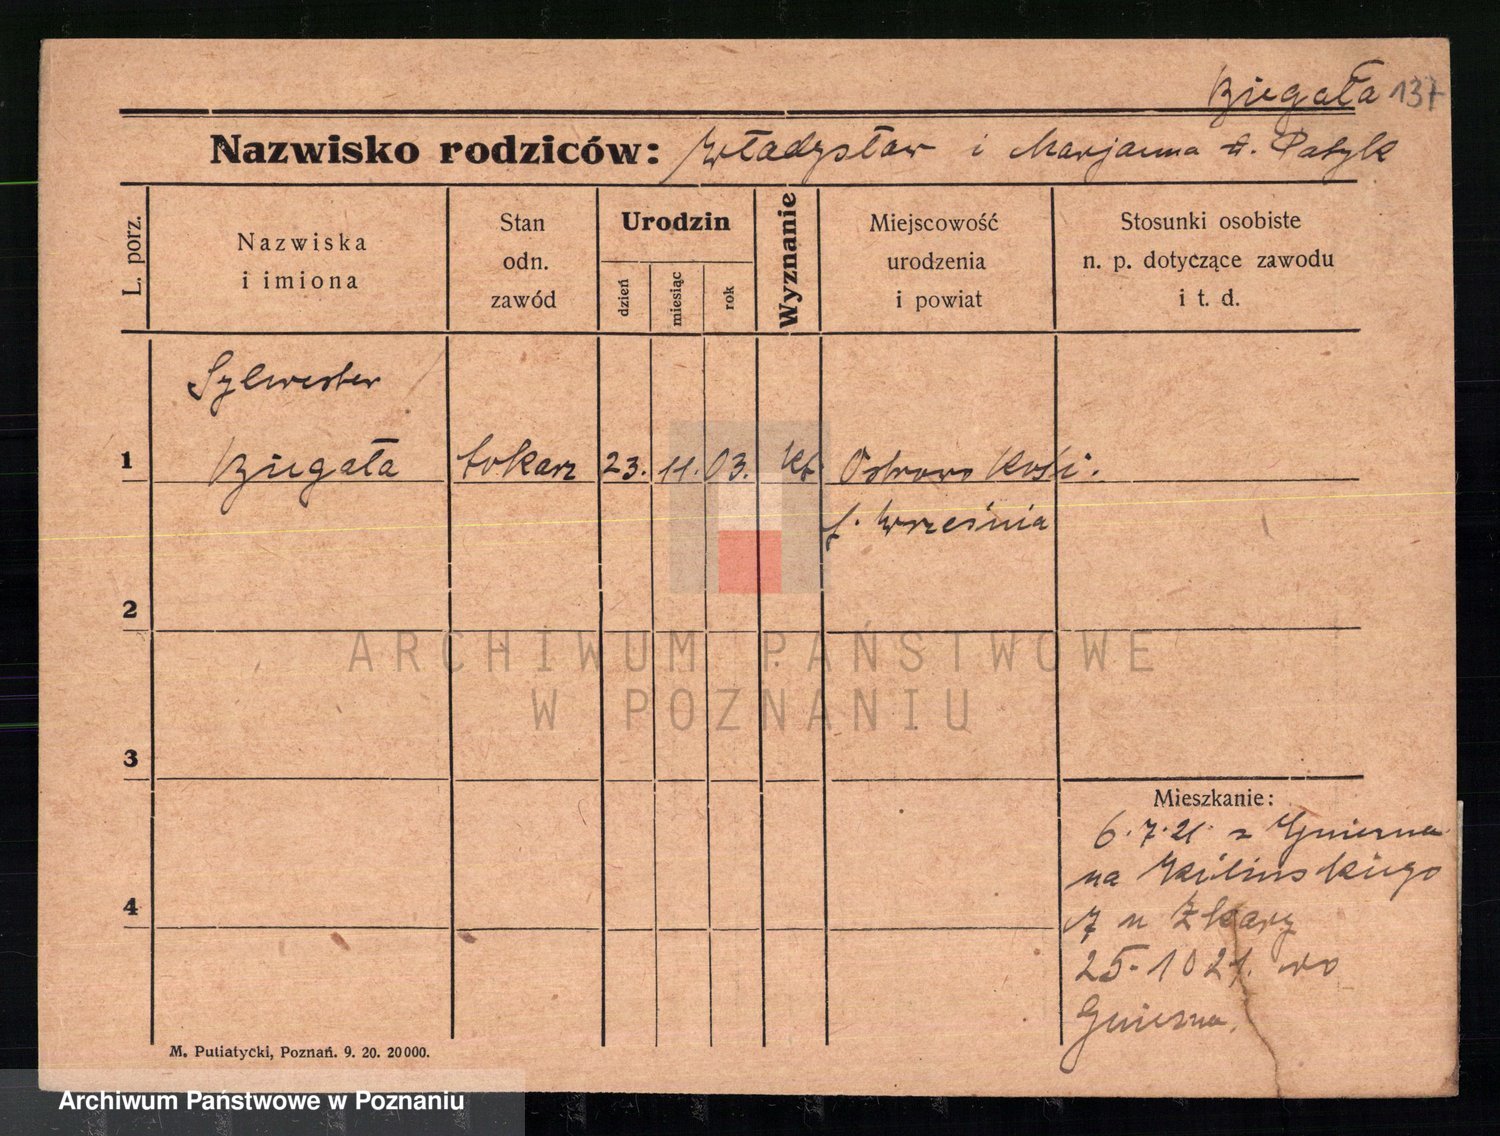 Biegała 137
Nazwisko rodziców: Władysław i Marjanna d. Patyk
L. porz.
Nazwiska
i imiona
Stan
odn.
zawód
Urodzin
dzień
miesiąc
rok
Wyznanie
Miejscowość
urodzenia
i powiat
Stosunki osobiste
n. p. dotyczące zawodu
i t. d.
Sylwester
1 Biegała tokarz 23. 11. 03. kt Ostrowo Kości.
p. Września
2
ARCHIWUM PAŃSTWOWE
W POZNANIU
3
Mieszkanie:
6.7.21. z Gniezna
na Kilińskiego
4
7 u
25.10 21. do
Gniezna.
M. Putiatycki, Poznań. 9. 20. 20000.
Archiwum Państwowe w Poznaniu